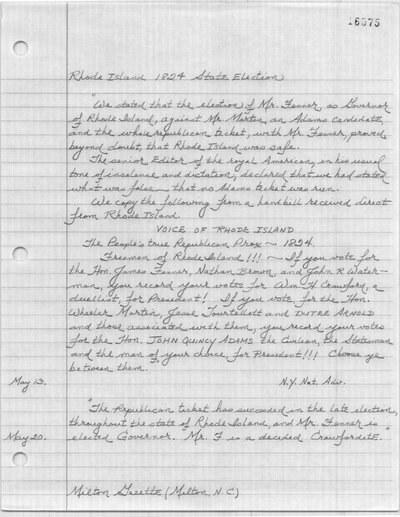 16575
Rhode Island 1824 State Election
"We stated that the election of Mr. Fenner, as Governor
of Rhode Island, against Mr. Martin, an Adams candidate,
and the whole republican ticket, with Mr. Fenner, proved,
beyond doubt, that Rhode Island was safe.
The senior Editor of the royal American, in his usual
tone of insolence and dictation, declared that we had stated
what was false — that no Adams ticket was run.
We copy the following from a handbill received direct
from Rhode Island.
VOICE OF RHODE ISLAND
The People's true Republican Prox — 1824.
Freemen of Rhode Island!!! — If you vote for
the Hon. James Fenner, Nathan Brown and John R Water-
man, you record your votes for Wm H Crawford, a
duellist, for President! If you vote, for the Hon.
Wheeler Martin, Jesse Tourtellott and DUTEE ARNOLD
and those associated with them, you record your votes
for the Hon. JOHN QUINCY ADAMS the Civilian, the Statesman
and the man of your choice, for President!!! Choose ye
between them.
May 13. N.Y. Nat. Adv.
"The Republican ticket has succeeded in the late election,
throughout the state of Rhode Island, and Mr. Fenner is
May 20. elected Governor. Mr. F is a decided Crawfordite."
Milton Gazette (Milton, N.C.)